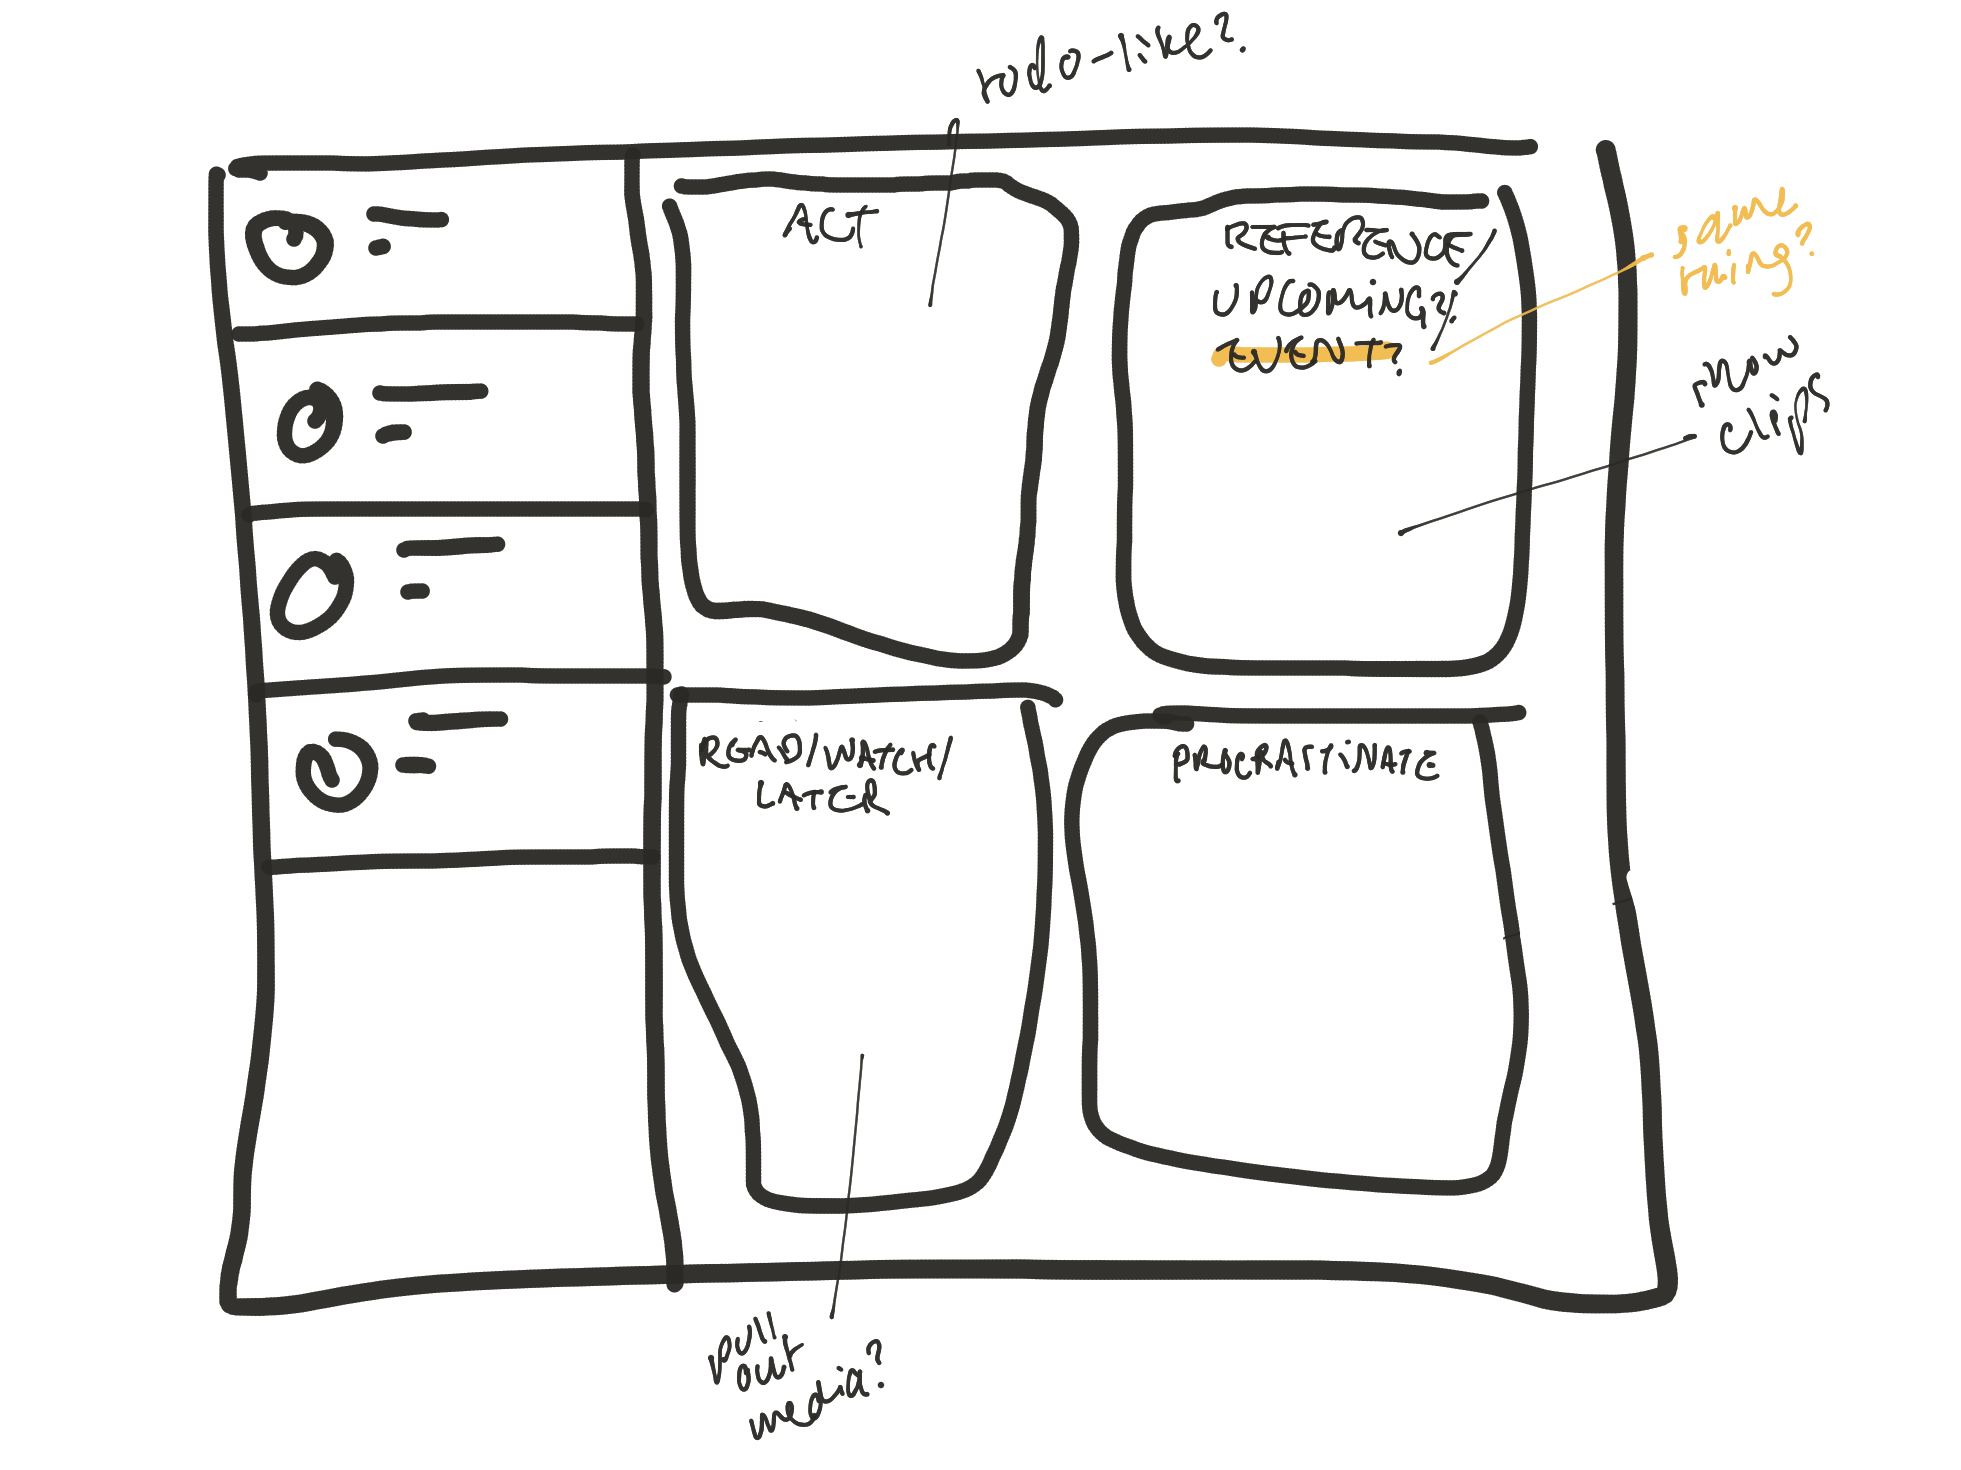 todo-like?
ACT
REFERENCE/
UPCOMING?/
EVENT?
same
thing?
show
clips
READ/WATCH/
LATER
PROCRASTINATE
pull
out
media?